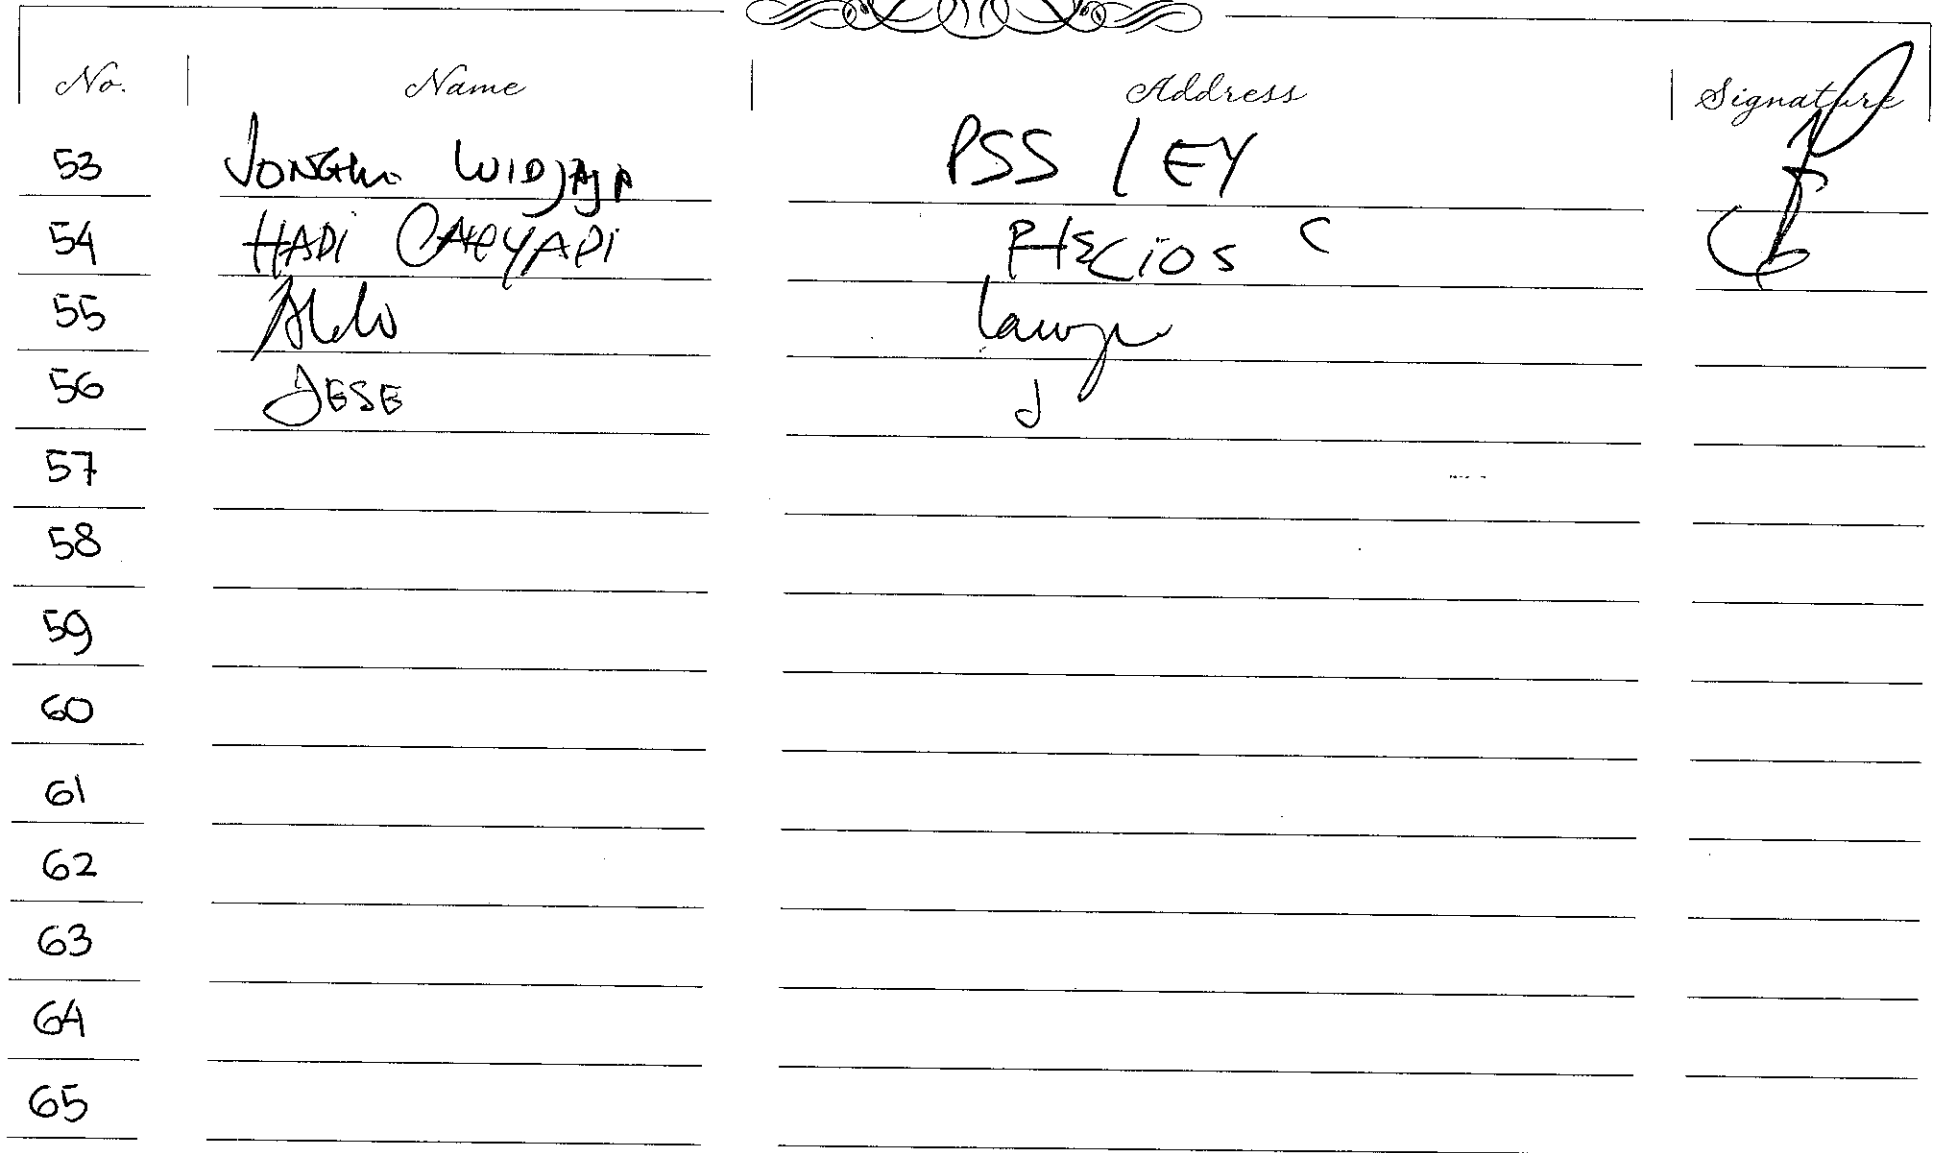 No. Name Address Signature
53 WIDJAJA PSS / EY
54 HADI CAHYADI HELIOS C
55 Aldo
56 JESE J
57
58
59
60
61
62
63
64
65